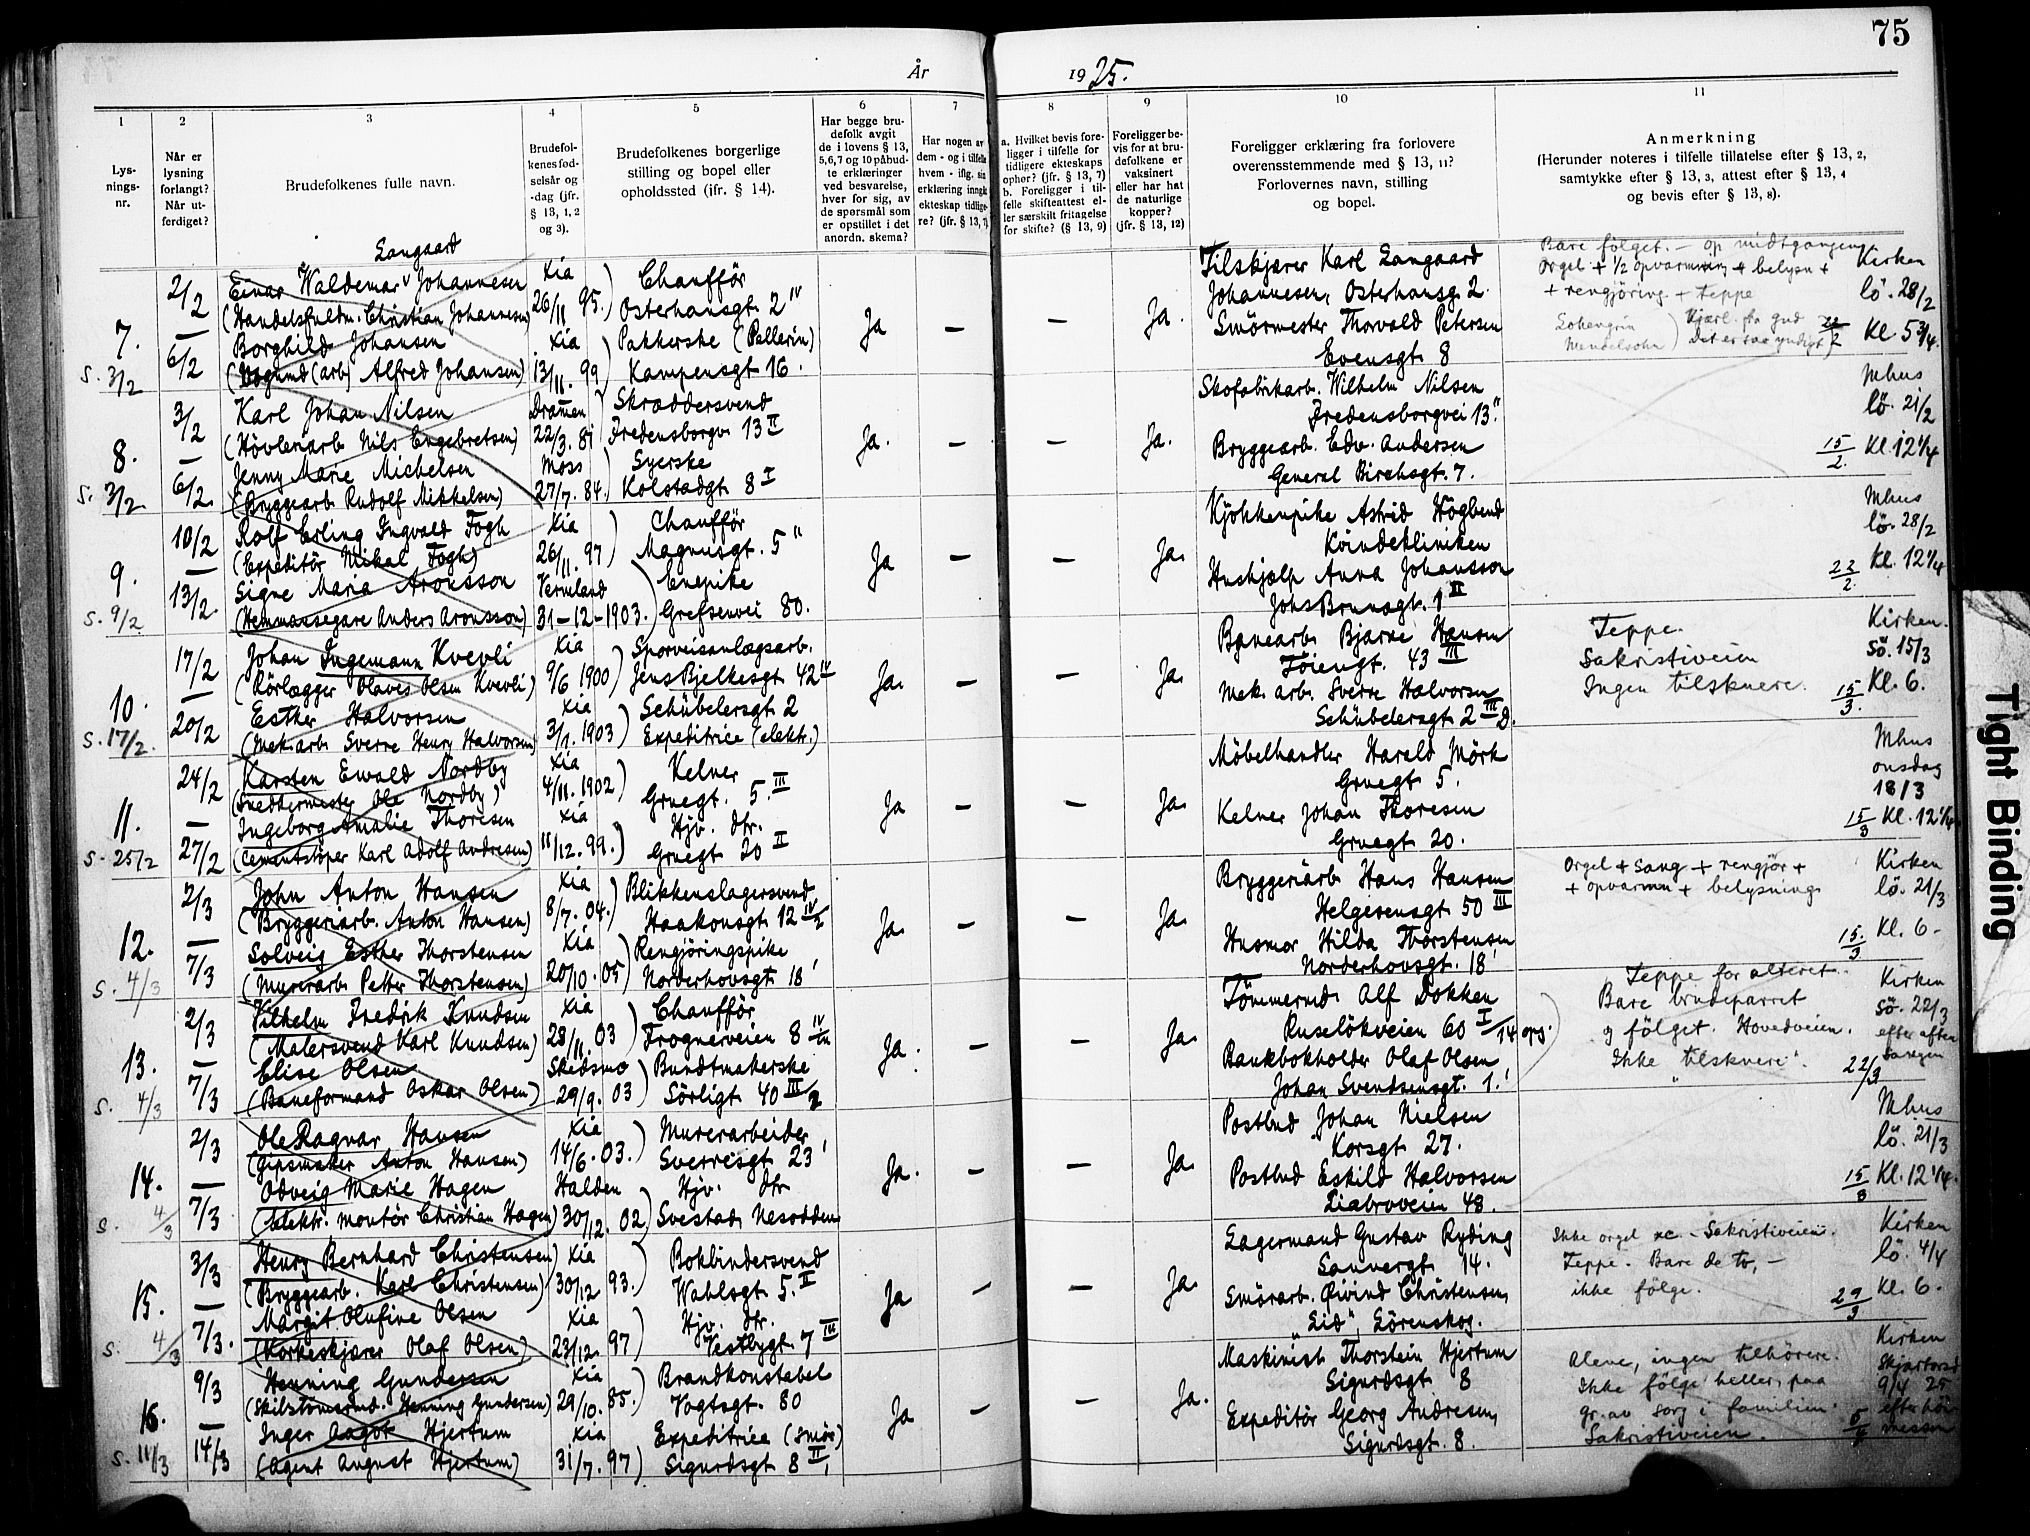 75
År
1925.
1
2
3
4
5
6
7
8
9
10
11
Lys-
nings-
nr.
Når er
lysning
forlangt?
Når ut-
ferdiget?
Brudefolkenes fulle navn.
Brudefol-
kenes fød-
selsår og
-dag (jfr.
§ 13, 1, 2
og 3).
Brudefolkenes borgerlige
stilling og bopel eller
opholdssted (jfr. § 14).
Har begge bru-
defolk avgit
de i lovens § 13,
5,6,7 og 10 påbud-
te erklæringer
ved besvarelse,
hver for sig, av
de spørsmål som
er opstillet i det
anordn. skema?
Har nogen av
dem - og i tilfelle
hvem - iflg. sin
erklæring inngå
ekteskap tidlige-
re? (jfr. § 13, 7)
a. Hvilket bevis fore-
ligger i tilfelle for
tidligere ekteskaps
ophør? (jfr. § 13, 7)
b. Foreligger i til-
felle skifteattest el-
ler særskilt fritagelse
for skifte? (§ 13, 9)
Foreligger be-
vis for at bru-
defolkene er
vaksinert
eller har hat
de naturlige
kopper?
(jfr. § 13, 12)
Foreligger erklæring fra forlovere
overensstemmende med § 13, 11?
Forlovernes navn, stilling
og bopel.
Anmerkning
(Herunder noteres i tilfelle tillatelse efter § 13, 2,
samtykke efter § 13, 3, attest efter § 13, 4
og bevis efter § 13, 8).
7.
S. 3/2
2/2
—
6/2
Langaard
Einar Waldemar Johannesen
(Handelsfuldm. Christian Johannesen)
Borghild Johansen
(Vognmd (arb) Alfred Johansen)
Kia
26/11 95.
Kia
13/11. 99
Chaufför
Osterhausgt. 2 IV
Pakkerske (Pellerin)
Kampensgt 16.
Ja
—
—
Ja.
Filskjærer Karl Langaard
Johannesen, Osterhausg. 2.
Smörmester Thorvald Petersen
Evensgt. 8
Bare fölget. — op midtgangen
Orgel + 1/2 opvarmning + belysn +
+ rengjöring + teppe
Lohengrin
Mendelsohn
Kjærl. fra gud
Det er saa yndigt
22/2
Kirken
lö. 28/2
Kl 5 3/4.
8.
S. 3/2
3/2
—
6/2
Karl Johan Nilsen
(Hövleriarb. Nils Engebretsen)
Jenny Marie Michelsen
(Bryggearb Rudolf Mikkelsen)
Dramen
22/3. 81
Moss
27/7. 84.
Skræddersvend
Fredensborgv. 13 II
Syerske
Kolstadgt 8 I
Ja.
—
—
Ja.
Skofabrikarb. Wilhelm Nilsen
Fredensborgvei 13."
Bryggearb. Edv. Andersen
General Birchsgt. 7.
15/2.
Mhus
lö. 21/2
Kl. 12 1/4
9.
S. 9/2
10/2
—
13/2.
Rolf Erling Ingvald Fogh
(Expeditör Mikal Fogh)
Signe Maria Aronsson
(Hemmansegare Anders Aronsson)
Kia
26/11. 97
Vermland
31-12-1903.
Chaufför
Magnusgt. 5 "
Enepike
Grefsenvei 80.
Ja
—
—
Ja.
Kjökkenpike Astrid Högberd
Kvindekliniken
Hushjælp Anna Johansson
Johs Brunsgt. 1 II
22/2.
Mhus
lö. 28/2
Kl. 12 1/4
10.
S. 17/2.
17/2
—
20/2
Johan Ingemann Kvevli
(Rörlægger Olaves Olsen Kvevli)
Esther Halvorsen
(Mek. arb Sverre Henry Halvorsen)
Kia
9/6 1900
Kia
3/1. 1903
Sporveisanlægsarb.
Jens Bjelkesgt. 42 IV
Schübelersgt 2
Expeditrice (elektr.)
Ja.
—
—
Ja.
Banearb. Bjarne Hansen
Töiengt. 43 III
Mek. arb. Sverre Halvorsen
Schübelersgt 2 III D.
Teppe.
Sakristiveien
Ingen tilskuere.
15/3.
Kirken.
Sö. 15/3
Kl. 6.
11.
S. 25/2
24/2
—
27/2
Karsten Ewald Nordby
(Snedkermester Ole Nordby)
Ingeborg Amalie Thoresen
(Cementstöper Karl Adolf Andresen)
Kia
4/11. 1902
Kia
11/12. 99.
Kelner
Gruegt. 5. III
Hjv. dtr.
Gruegt 20 II
Ja
—
—
Ja.
Möbelhandler Harald Mörk
Gruegt 5.
Kelner Johan Thoresen
Gruegt 20.
15/3
Mhus
onsdag
18/3
Kl. 12 1/4
12.
S. 4/3
2/3
—
7/3
John Anton Hansen
(Bryggeriarb. Anton Hansen)
Solveig Esther Thorstensen
(Murerarb. Petter Thorstensen)
Kia
8/7. 04.
Kia
20/10. 05
Blikkenslagersvend
Haakonsgt 12 IV/2
Rengjöringspike
Norderhovsgt 18 '
Ja.
—
—
Ja.
Bryggeriarb Hans Hansen
Helgesensgt 50 III
Husmor Hilda Thorstensen
Norderhovsgt. 18 '
Orgel + sang + rengjör +
+ opvarmn + belysning
15./3
Kirken
lö. 21/3
Kl. 6 -
13.
S. 4/3
2/3
—
7/3
Vilhelm Fredrik Knudsen
(Malersvend Karl Knudsen)
Elise Olsen
(Baneformand Oskar Olsen)
Kia
28/11 03
Skedsmo
29/9. 03
Chaufför
Frognerveien 8 IV
Bundtmakerske
Sörligt 40 III/2
Ja.
—
—
Ja.
Tömmermd. Alf Dokken
Ruselökveien 60 I/14 opg.
Bankbokholder Olaf Olsen
Johan Svendsensgt. 1.'
Teppe for alteret.
Bare brudeparret
og fölget. Hovedveien.
Ikke "tilskuere".
22/3
Kirken
Sö. 22/3
efter aften
sangen
14.
S. 4/3
2/3
—
7/3
Ole Ragnar Hansen
(Gipsmaker Anton Hansen)
Odveig Marie Hagen
(Elektr. montör Christian Hagen)
Kia
14/6. 03.
Halden
30/12. 02
Murerarbeider
Sverresgt 23 '
Hjv. dtr
Svestad, Nesodden
Ja.
—
—
Ja.
Postbud Johan Nielsen
Korsgt 27.
Postbud Eskild Halvorsen
Liabroveien 48.
15/3
Mhus
lö. 21/3
Kl. 12 1/4.
15.
S. 4/3
3/3
—
7/3.
Henry Bernhard Christensen
(Bryggearb. Karl Christensen)
Margit Olufine Olsen
(Korkeskjærer Olaf Olsen)
Kia
30/12 93.
Kia
23/12. 97
Bokbindersvend
Wahlsgt 5. II
Hjv. dtr.
Vestbygt 7 III
Ja
—
—
Ja.
Lagermand Gustav Ryding
Sannergt 14.
Smörarb. Øivind Christensen,
"Lid", Lörenskog.
Ikke orgel &c. - Sakristiveien.
Teppe. Bare de to, -
ikke fölge.
29/3
Kirken
lö. 4/4
Kl. 6.
16.
S. 11/3
9/3
—
14/3
Henning Gundersen
(Skibstömmermd. Henning Gundersen)
Inger Aagot Hjertum
(Agent August Hjertum)
Kia
29/10. 85.
Kia
31/7. 97
Brandkonstabel
Vogtsgt. 80
Expeditrice (smör)
Sigurdsgt 8 II
Ja
—
—
Ja.
Maskinist Thorstein Hjertum
Sigurdsgt 8
Expeditör Georg Andresen,
Sigurdsgt. 8.
Alene, ingen tilhörere.
Ikke fölge heller, paa
gr. av sorg i familien.
Sakristiveien.
Kirken
Skjærtorsd
9/4 25
efter höi
messen
Tight Binding